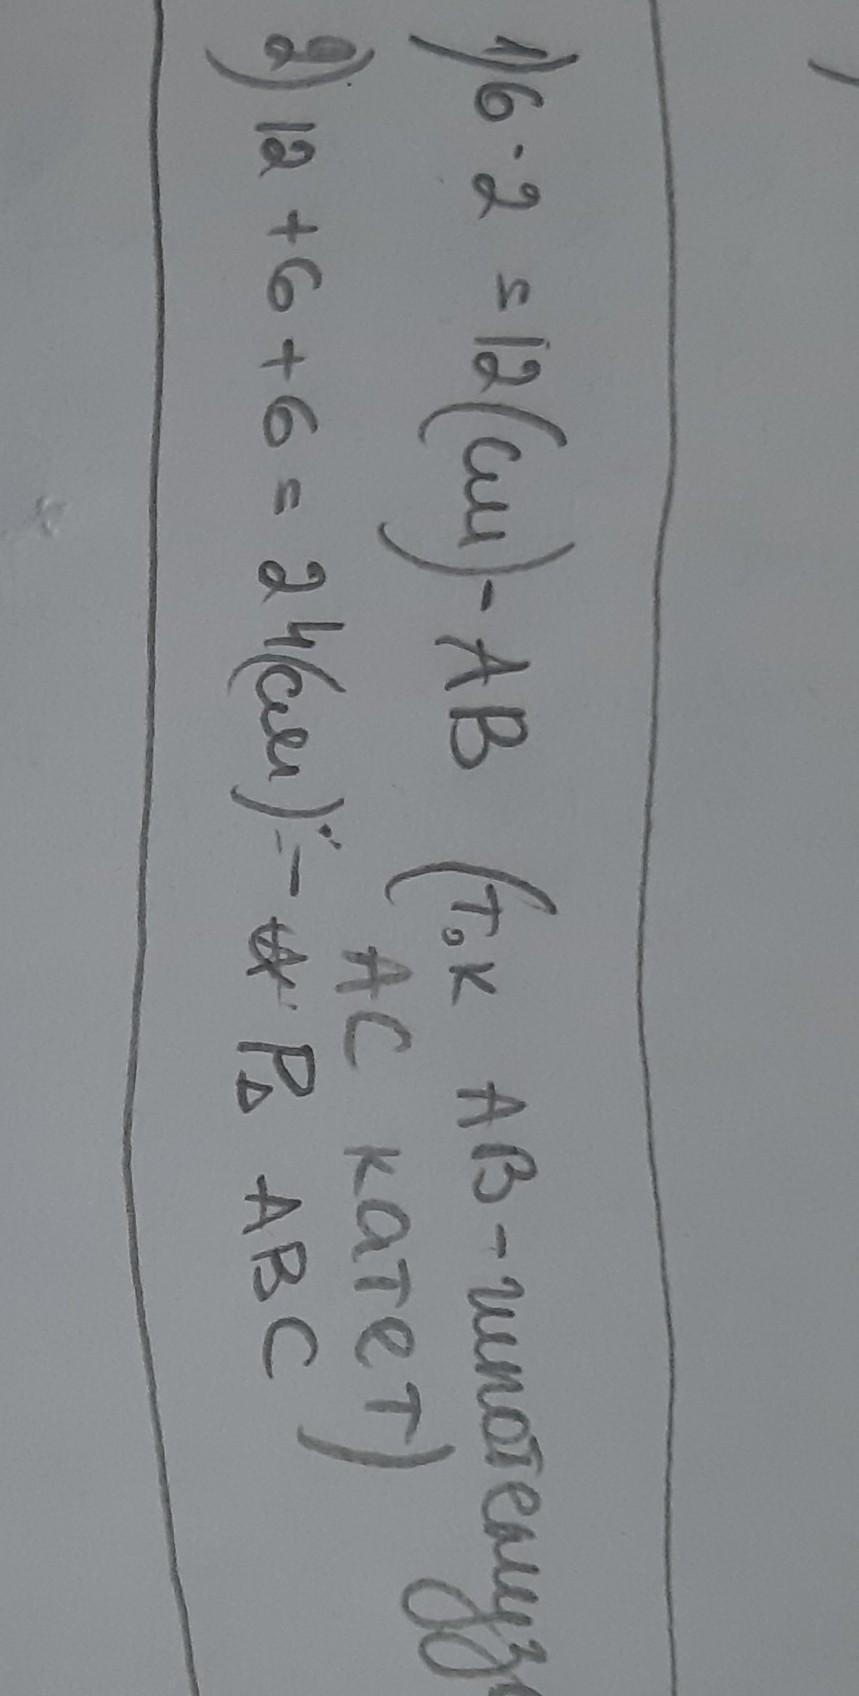 1) 6·2 = 12 (см) - AB (т.к AB - гипотенуза
AC катет)
2) 12 + 6 + 6 = 24 (см) - P△ ABC